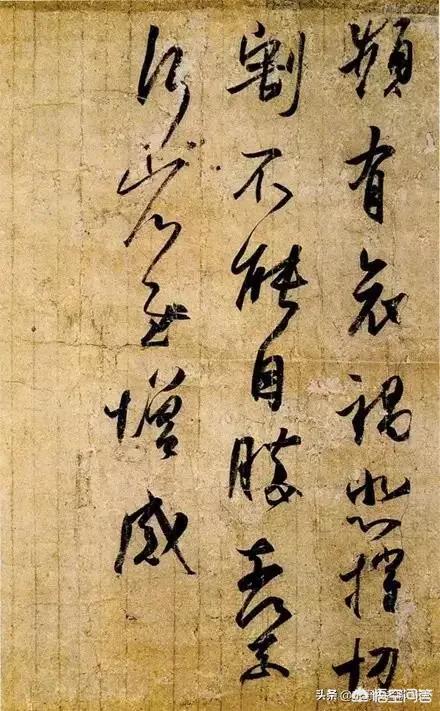 頻有哀禍悲摧切
割不能自勝奈何奈
何省慰增感
头条
悟空问答